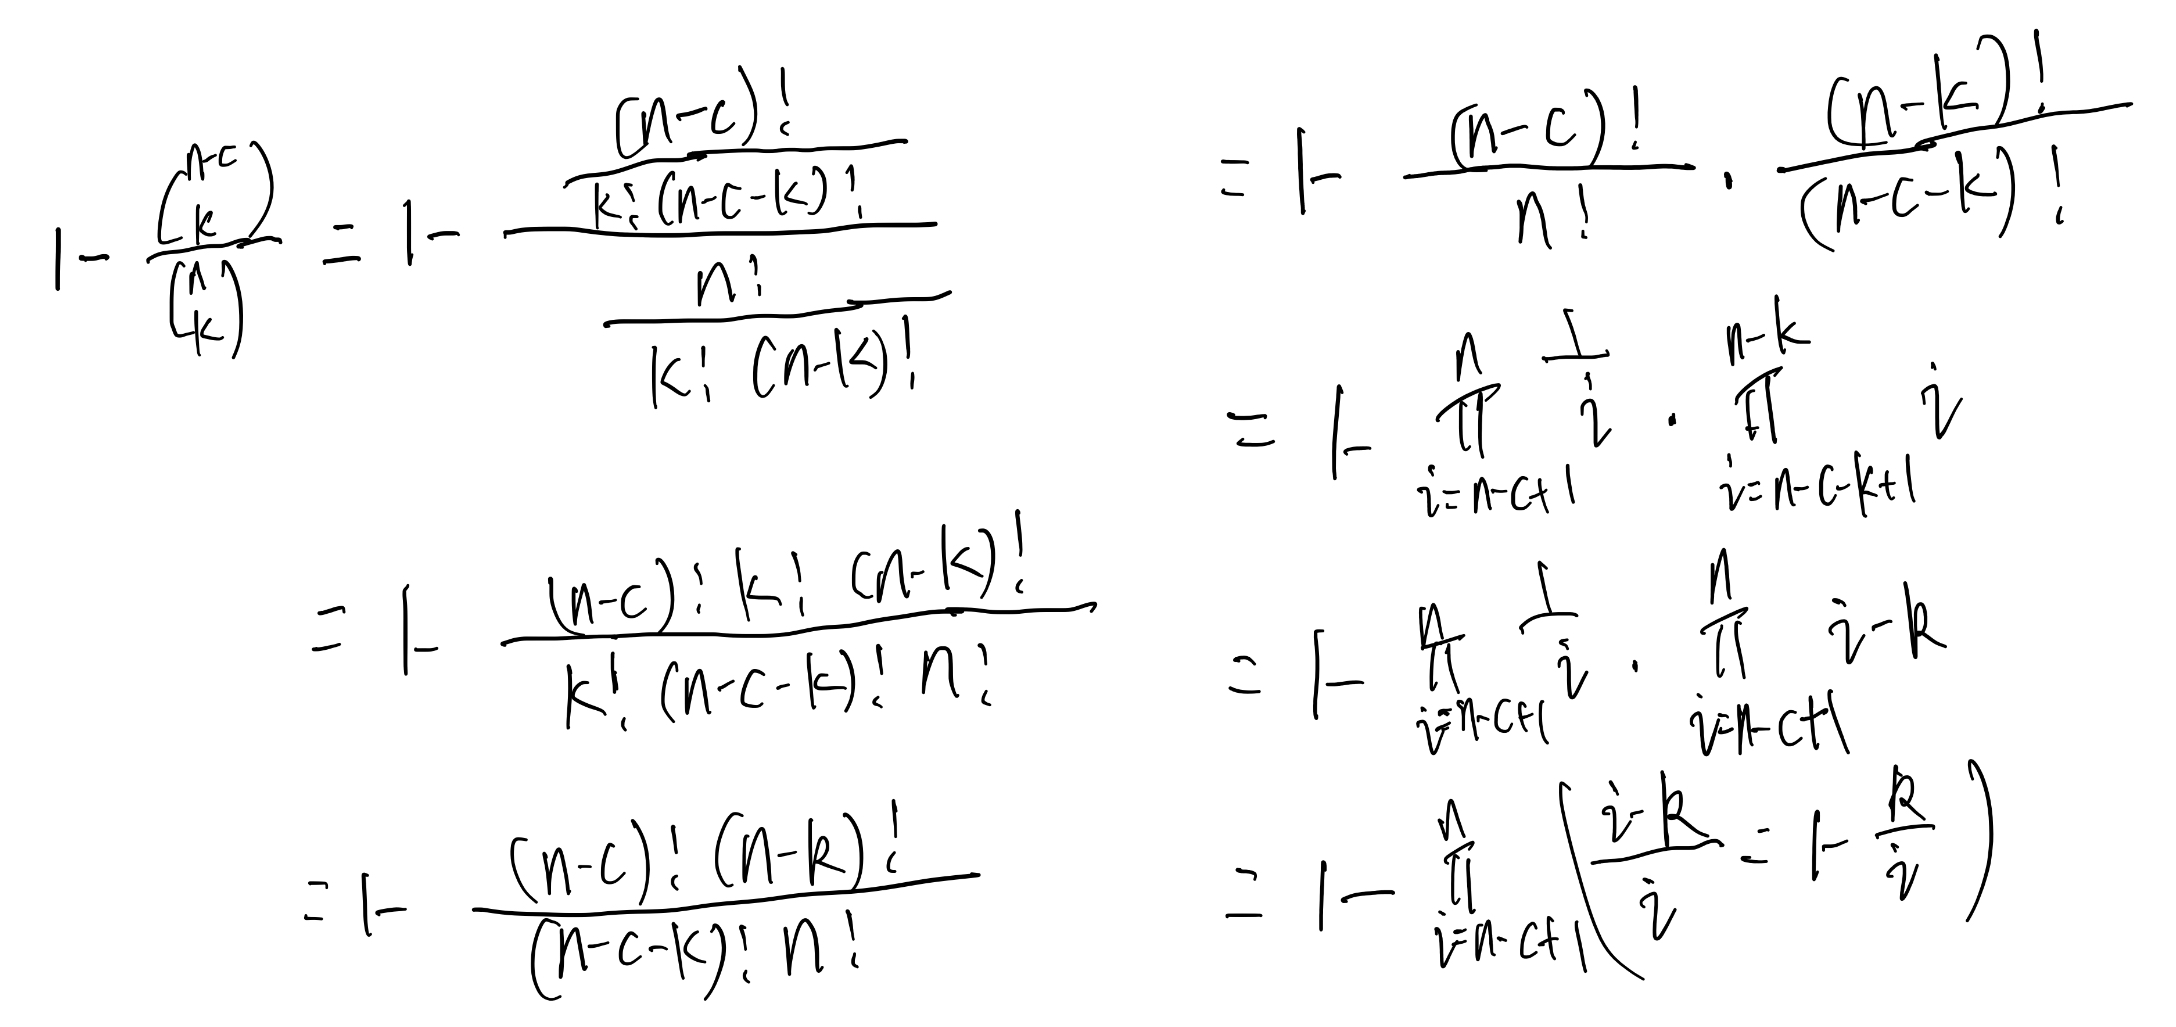 1 - \frac{\binom{n-c}{k}}{\binom{n}{k}} = 1 - \frac{\frac{(n-c)!}{k!(n-c-k)!}}{\frac{n!}{k!(n-k)!}}
= 1 - \frac{(n-c)! k! (n-k)!}{k! (n-c-k)! n!}
= 1 - \frac{(n-c)! (n-k)!}{(n-c-k)! n!}
= 1 - \frac{(n-c)!}{n!} \cdot \frac{(n-k)!}{(n-c-k)!}
= 1 - \prod_{i=n-c+1}^{n} \frac{1}{i} \cdot \prod_{i=n-c-k+1}^{n-k} i
= 1 - \prod_{i=n-c+1}^{n} \frac{1}{i} \cdot \prod_{i=n-c+1}^{n} i-k
= 1 - \prod_{i=n-c+1}^{n} \left( \frac{i-k}{i} = 1 - \frac{k}{i} \right)